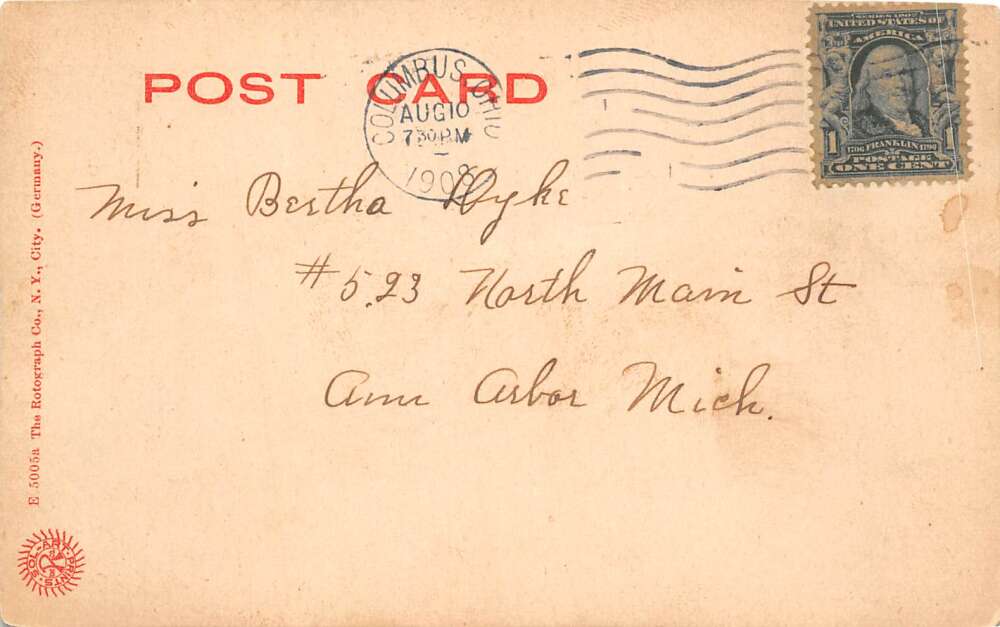 POST CARD
COLUMBUS, OHIO
AUG 10
7 30 PM
1908
SERIES 1902
UNITED STATES OF
AMERICA
1
1706 FRANKLIN 1790
POSTAGE
ONE CENT
Miss Bertha Dyke
#523 North Main St
Ann Arbor Mich.
E 5005a The Rotograph Co., N. Y., City. (Germany.)
SOL-ART-PRINTS